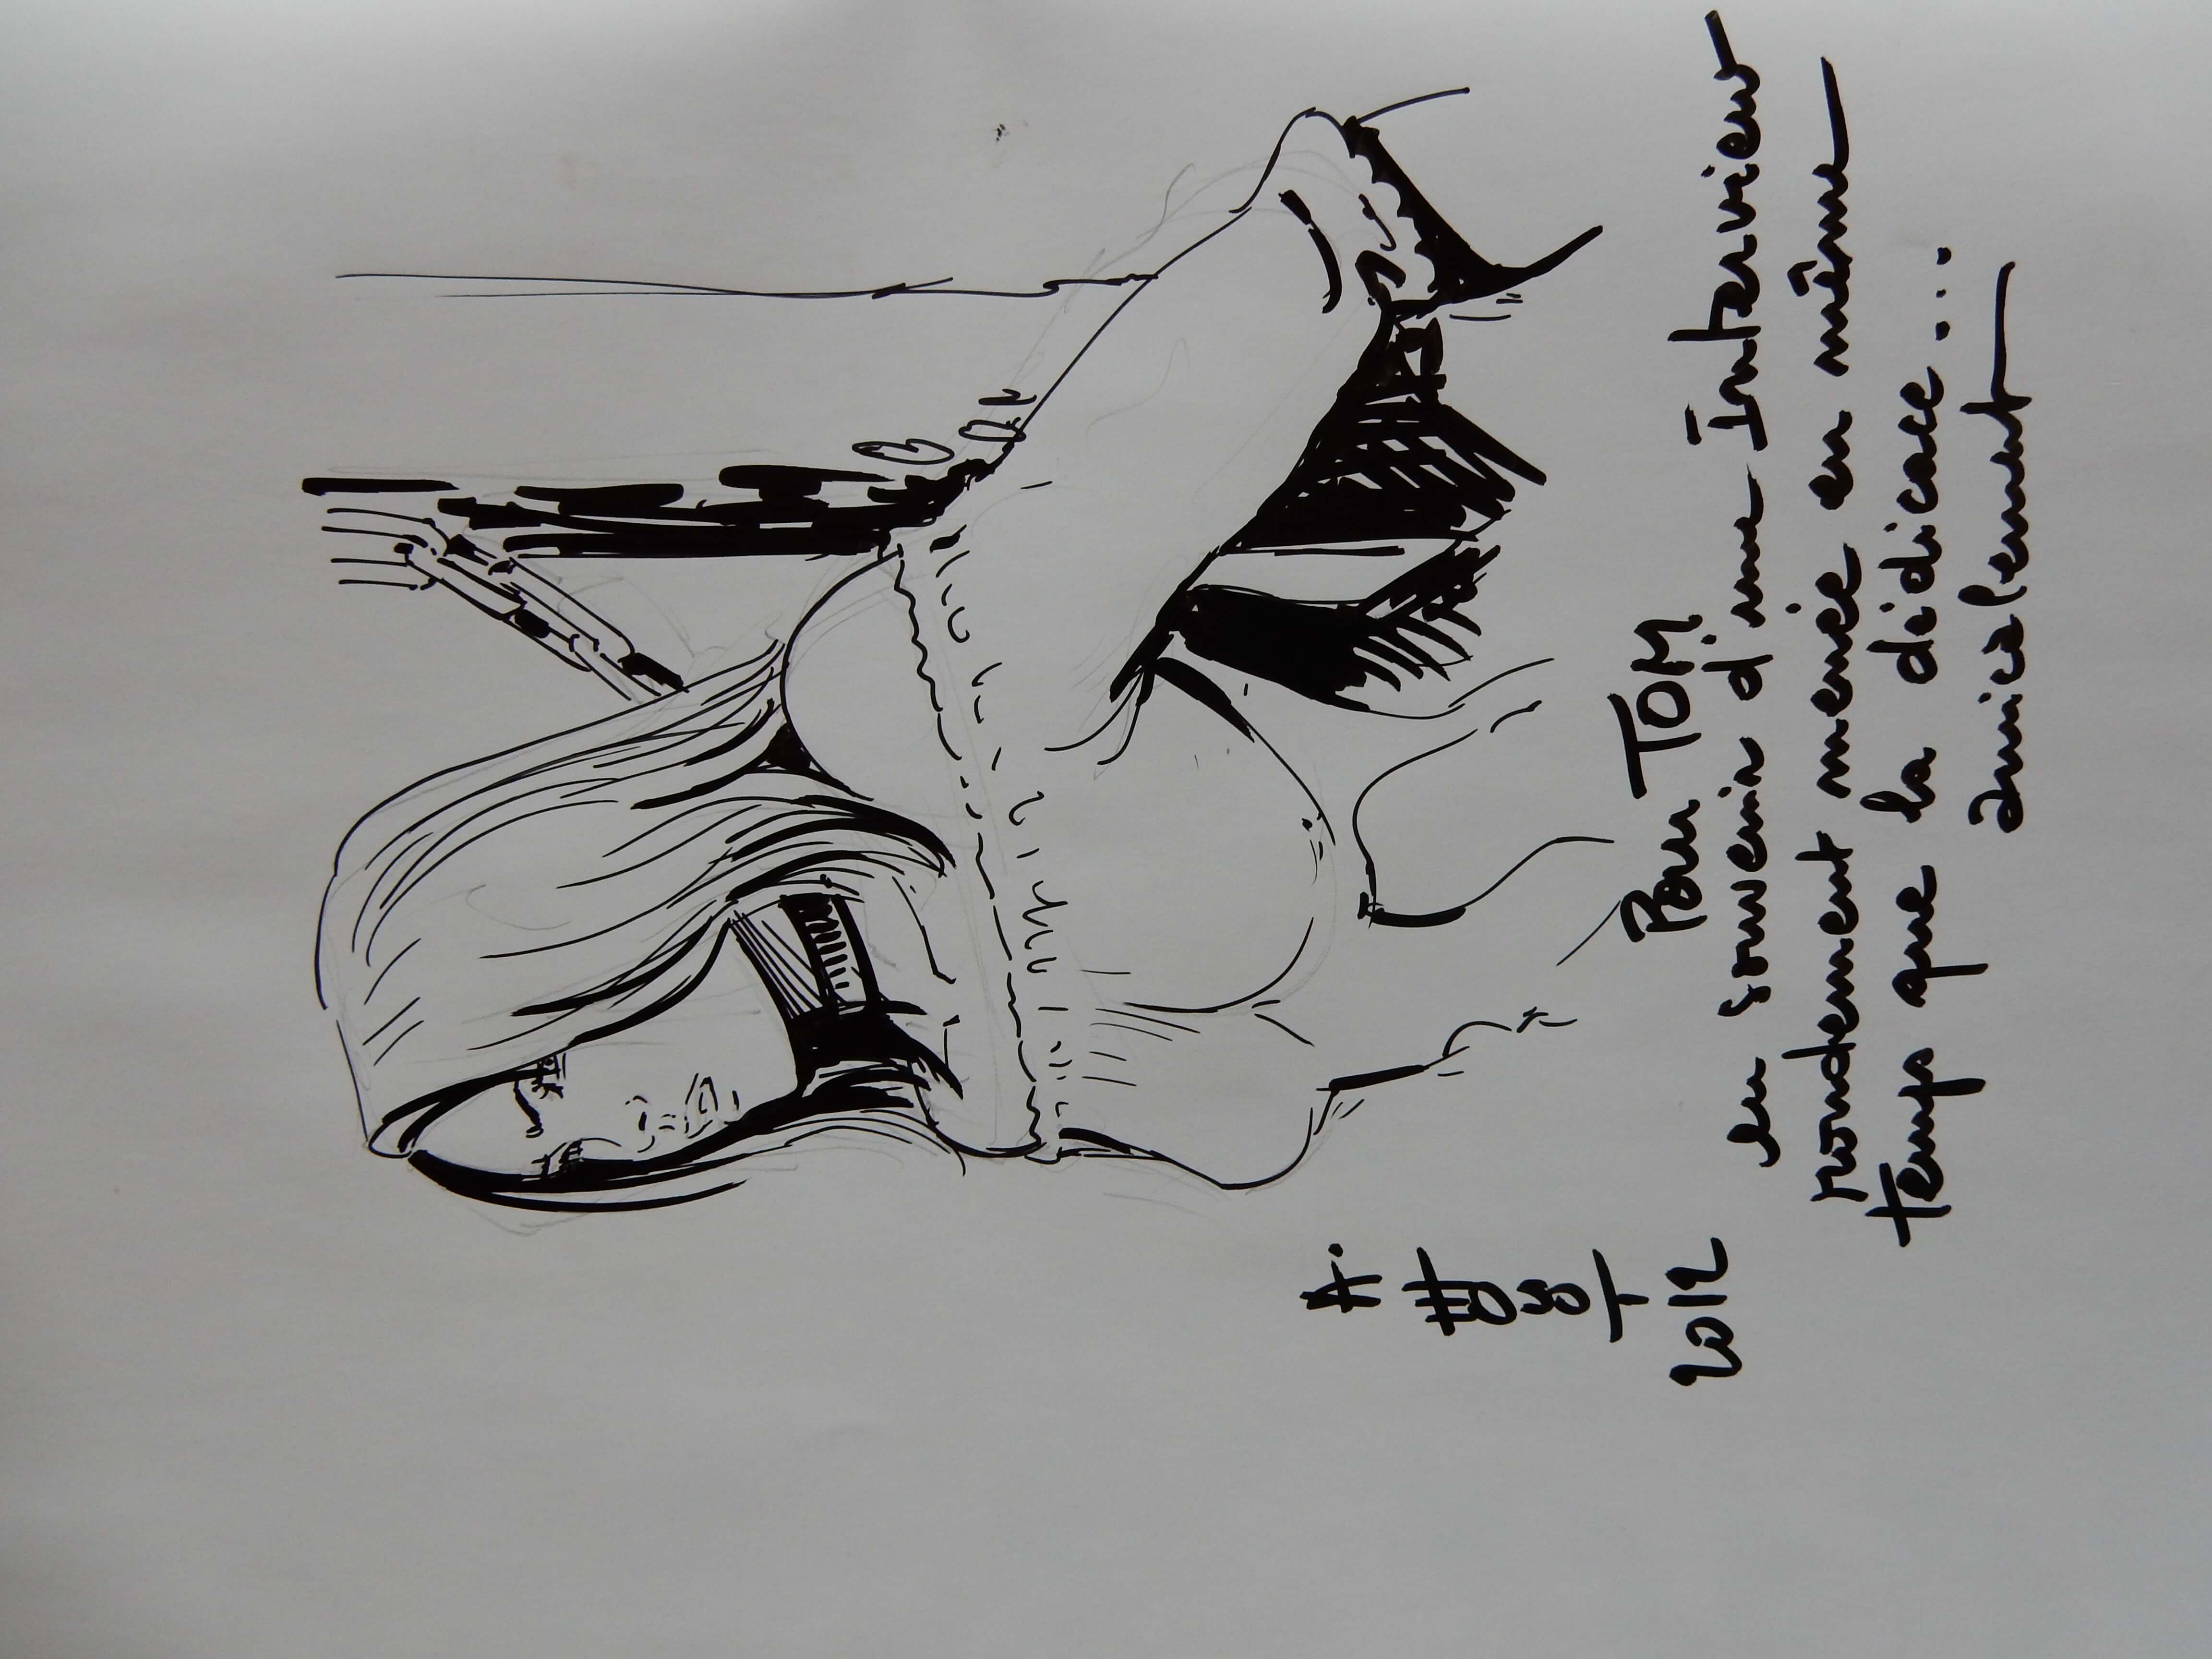 A. HOUOT
2012
Pour TOM
en souvenir d'une Interview
rondement menée en même
temps que la dédicace...
amicalement